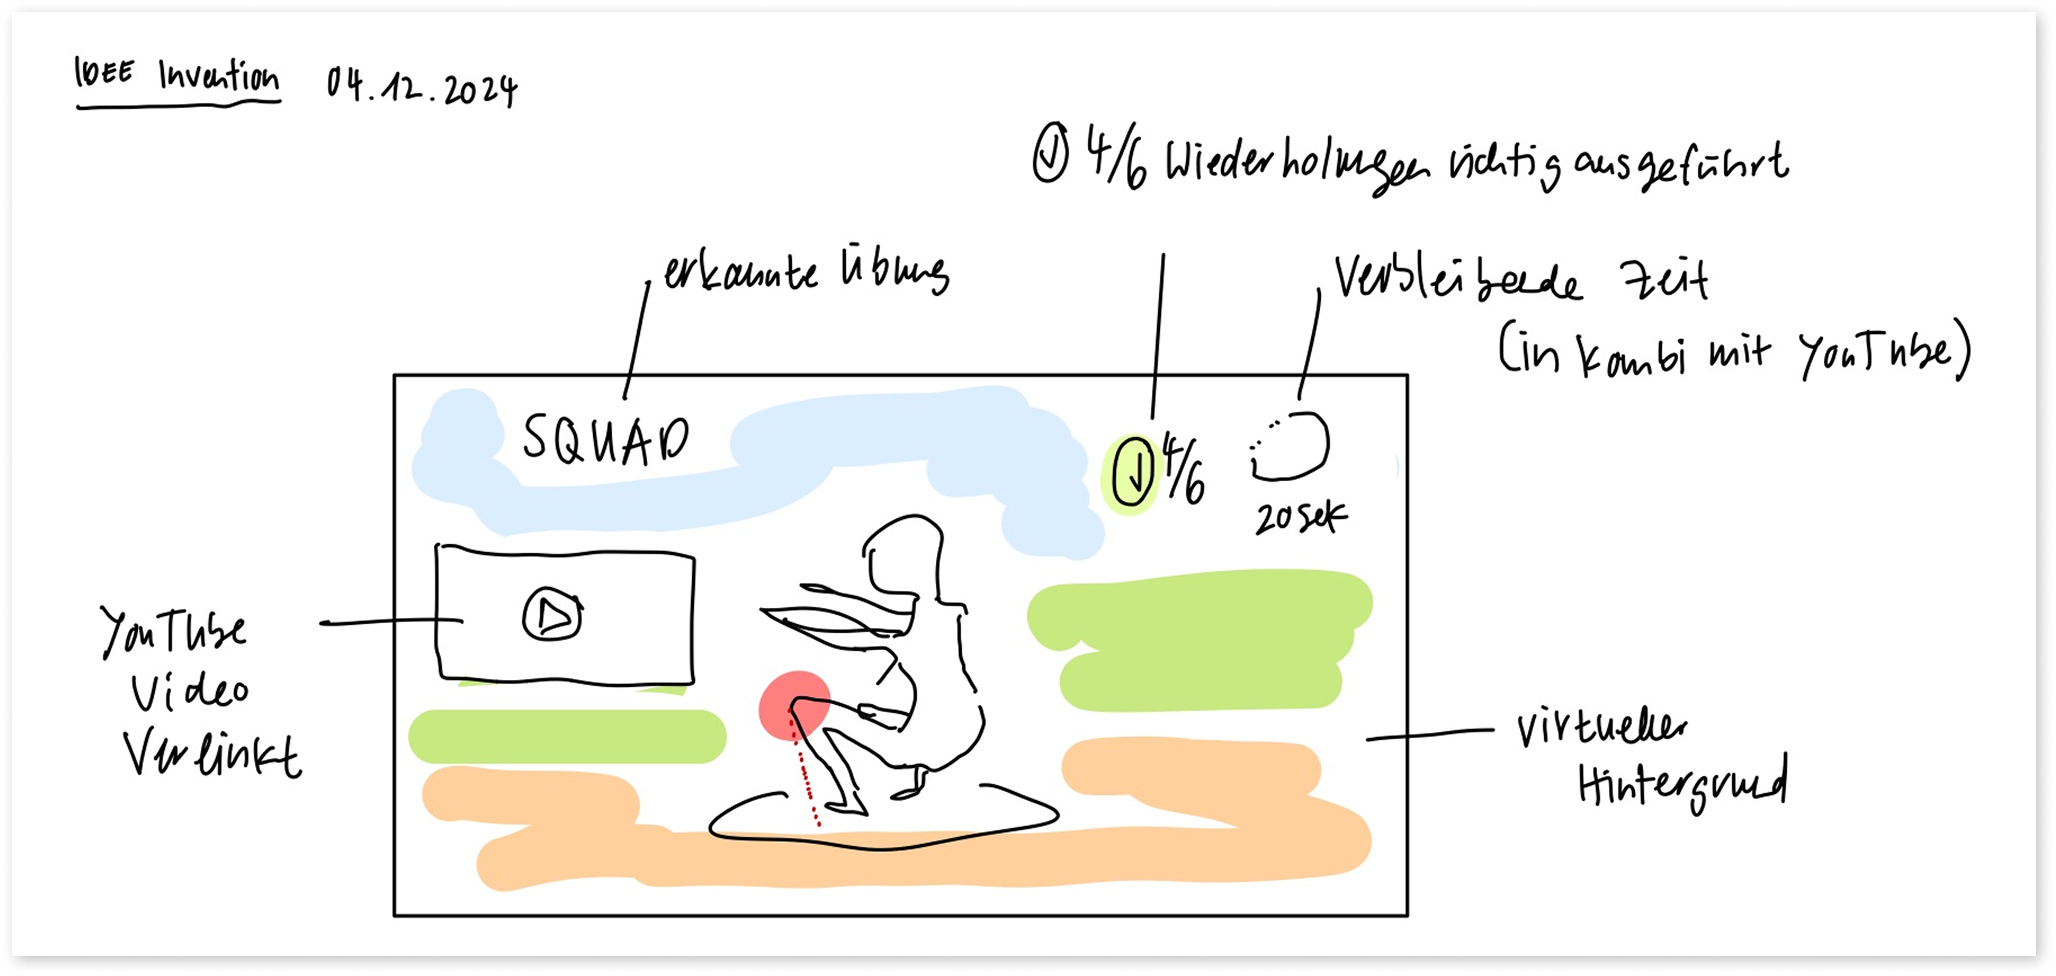 IDEE Invention 04.12.2024
4/6 Wiederholungen richtig ausgeführt
erkannte Übung
Verbleibende Zeit
(in Kombi mit YouTube)
SQUAD
4/6
20 sek
YouTube
Video
Verlinkt
virtueller
Hintergrund